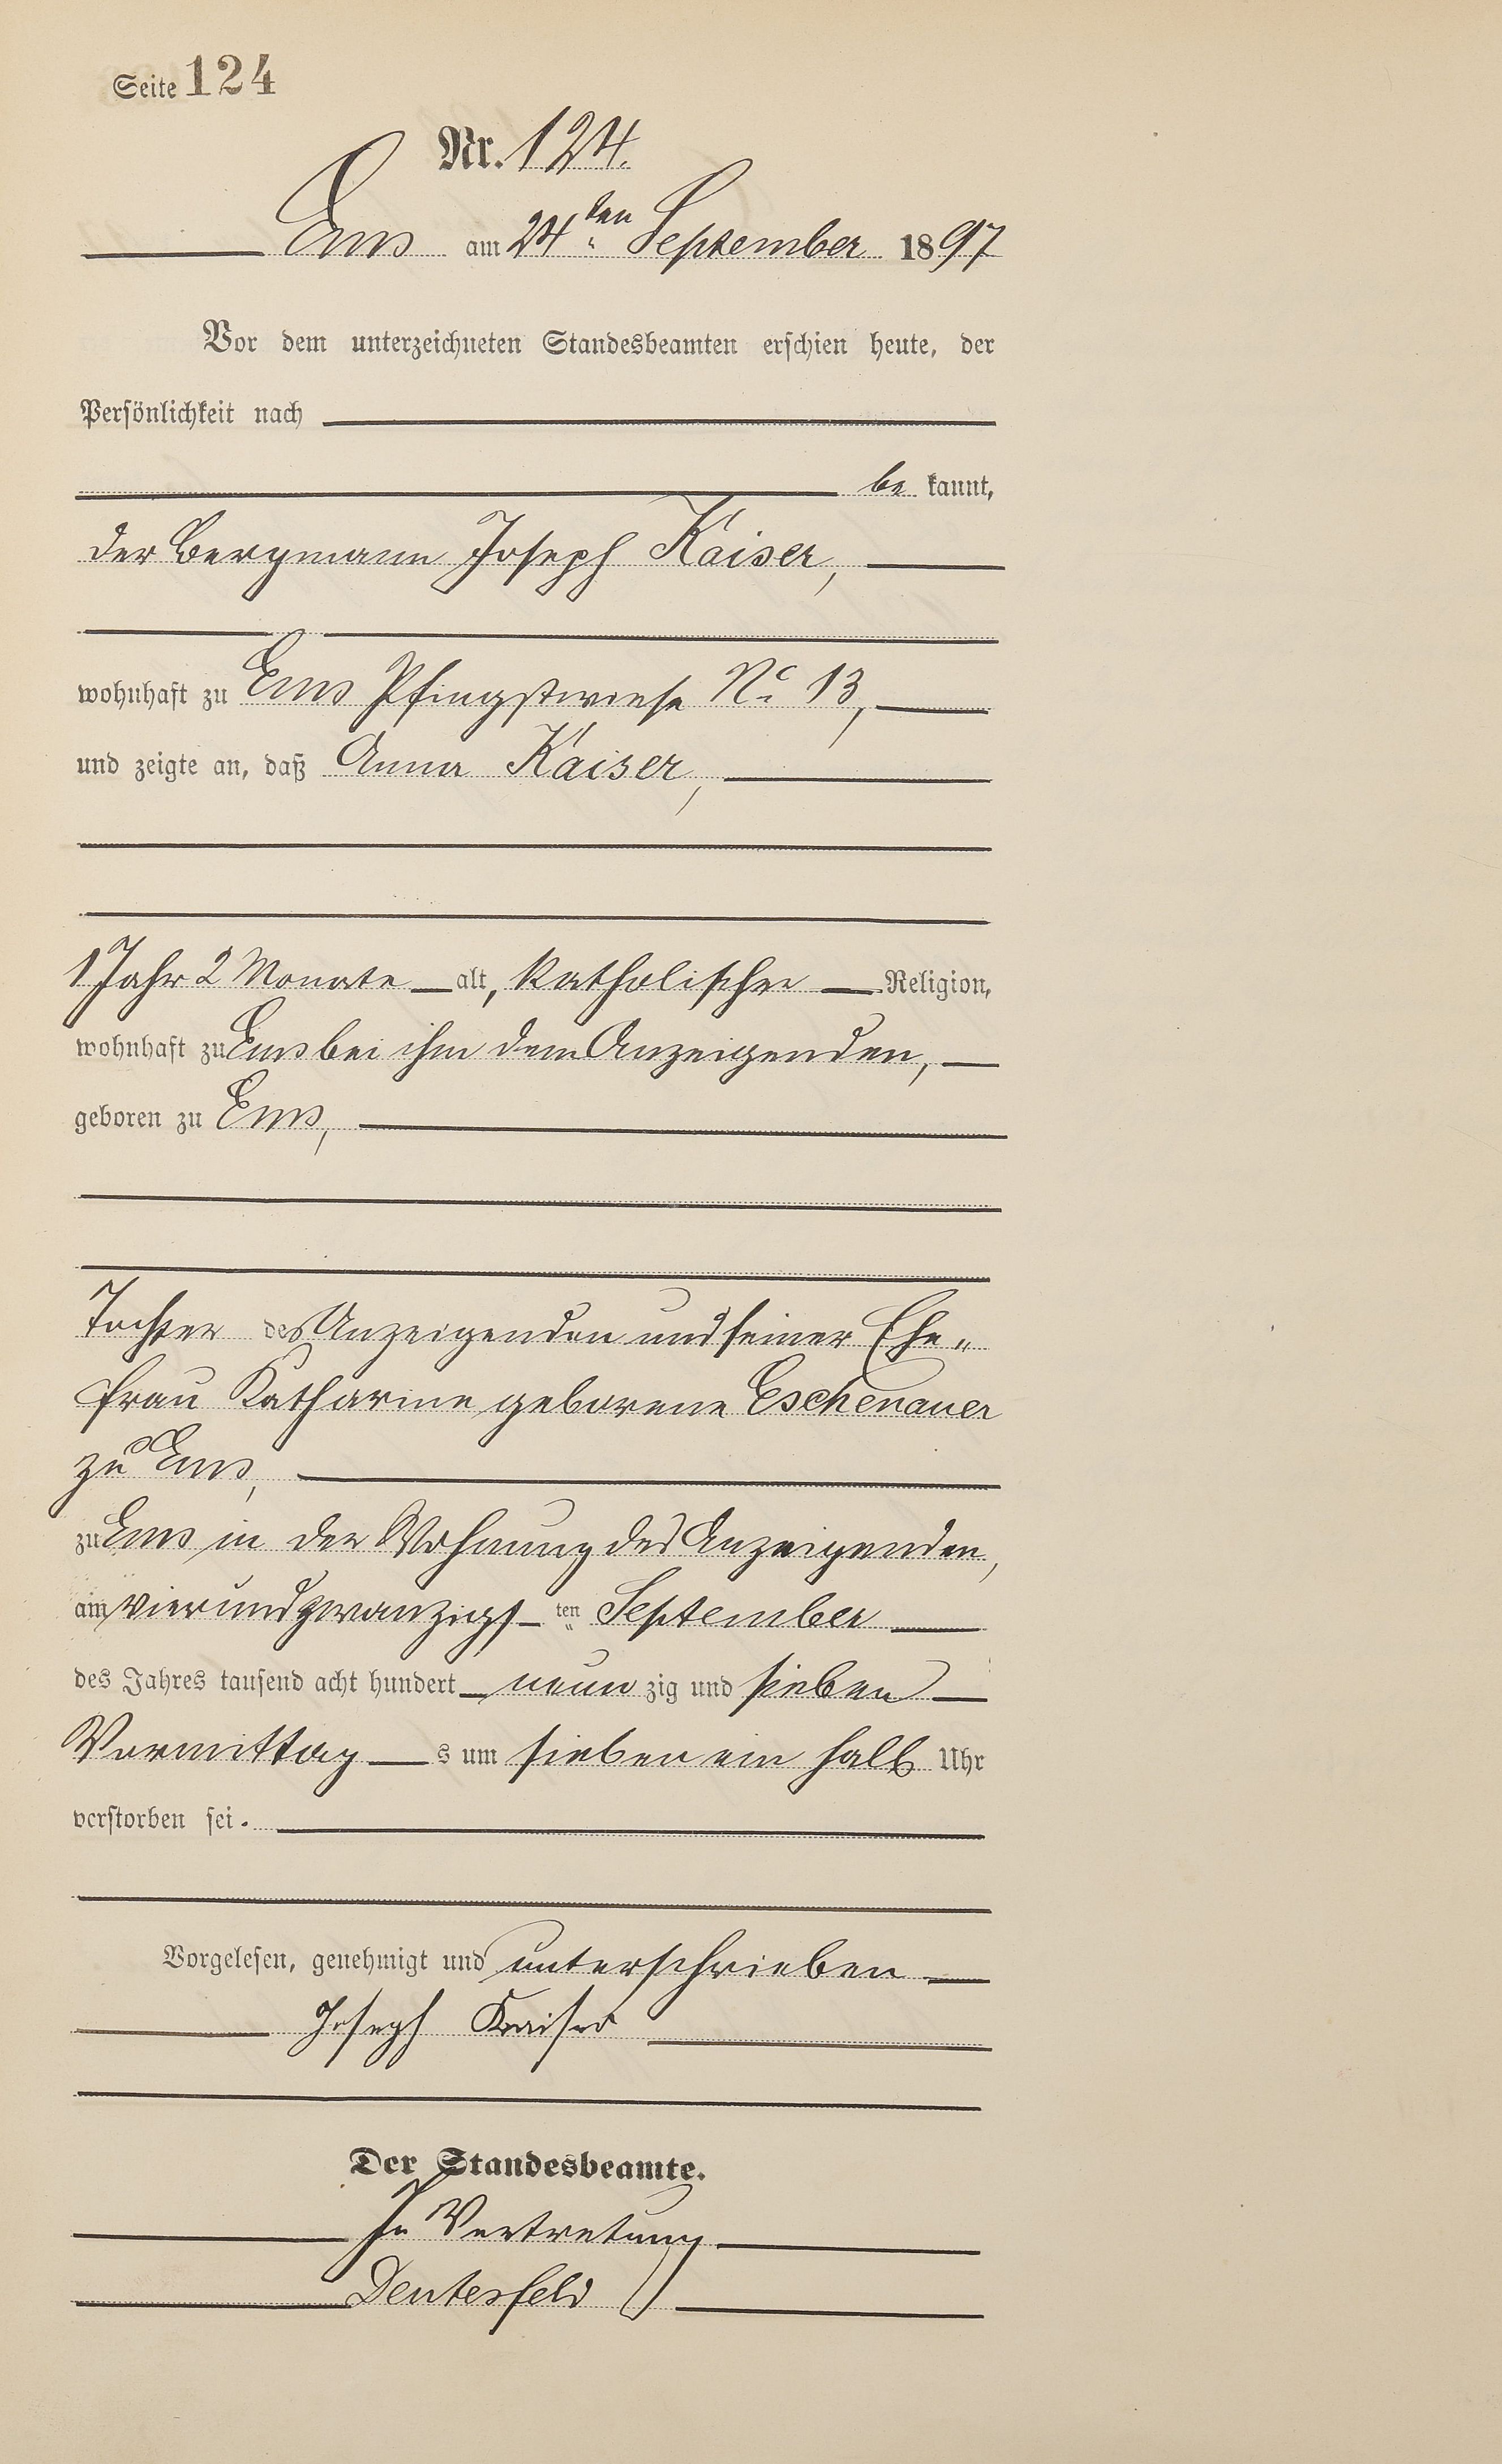 Seite 124
Nr. 124.
Ems am 24ten September 1897
Vor dem unterzeichneten Standesbeamten erschien heute, der
Persönlichkeit nach
be kannt,
der Bergmann Joseph Kaiser,
wohnhaft zu Ems Pfingstwiese No 13,
und zeigte an, daß Anna Kaiser,
1 Jahr 2 Monate alt, katholischer Religion,
wohnhaft zu Ems bei ihm dem Anzeigenden,
geboren zu Ems,
Tochter des Anzeigenden und seiner Ehe„
frau Katharine geborene Eschenauer
zu Ems,
zu Ems in der Wohnung des Anzeigenden,
am vierundzwanzigs ten September
des Jahres tausend acht hundert neun zig und sieben
Vormittag s um sieben ein halb Uhr
verstorben sei.
Vorgelesen, genehmigt und unterschrieben
Joseph Kaiser
Der Standesbeamte.
In Vertretung
Deutesfeld